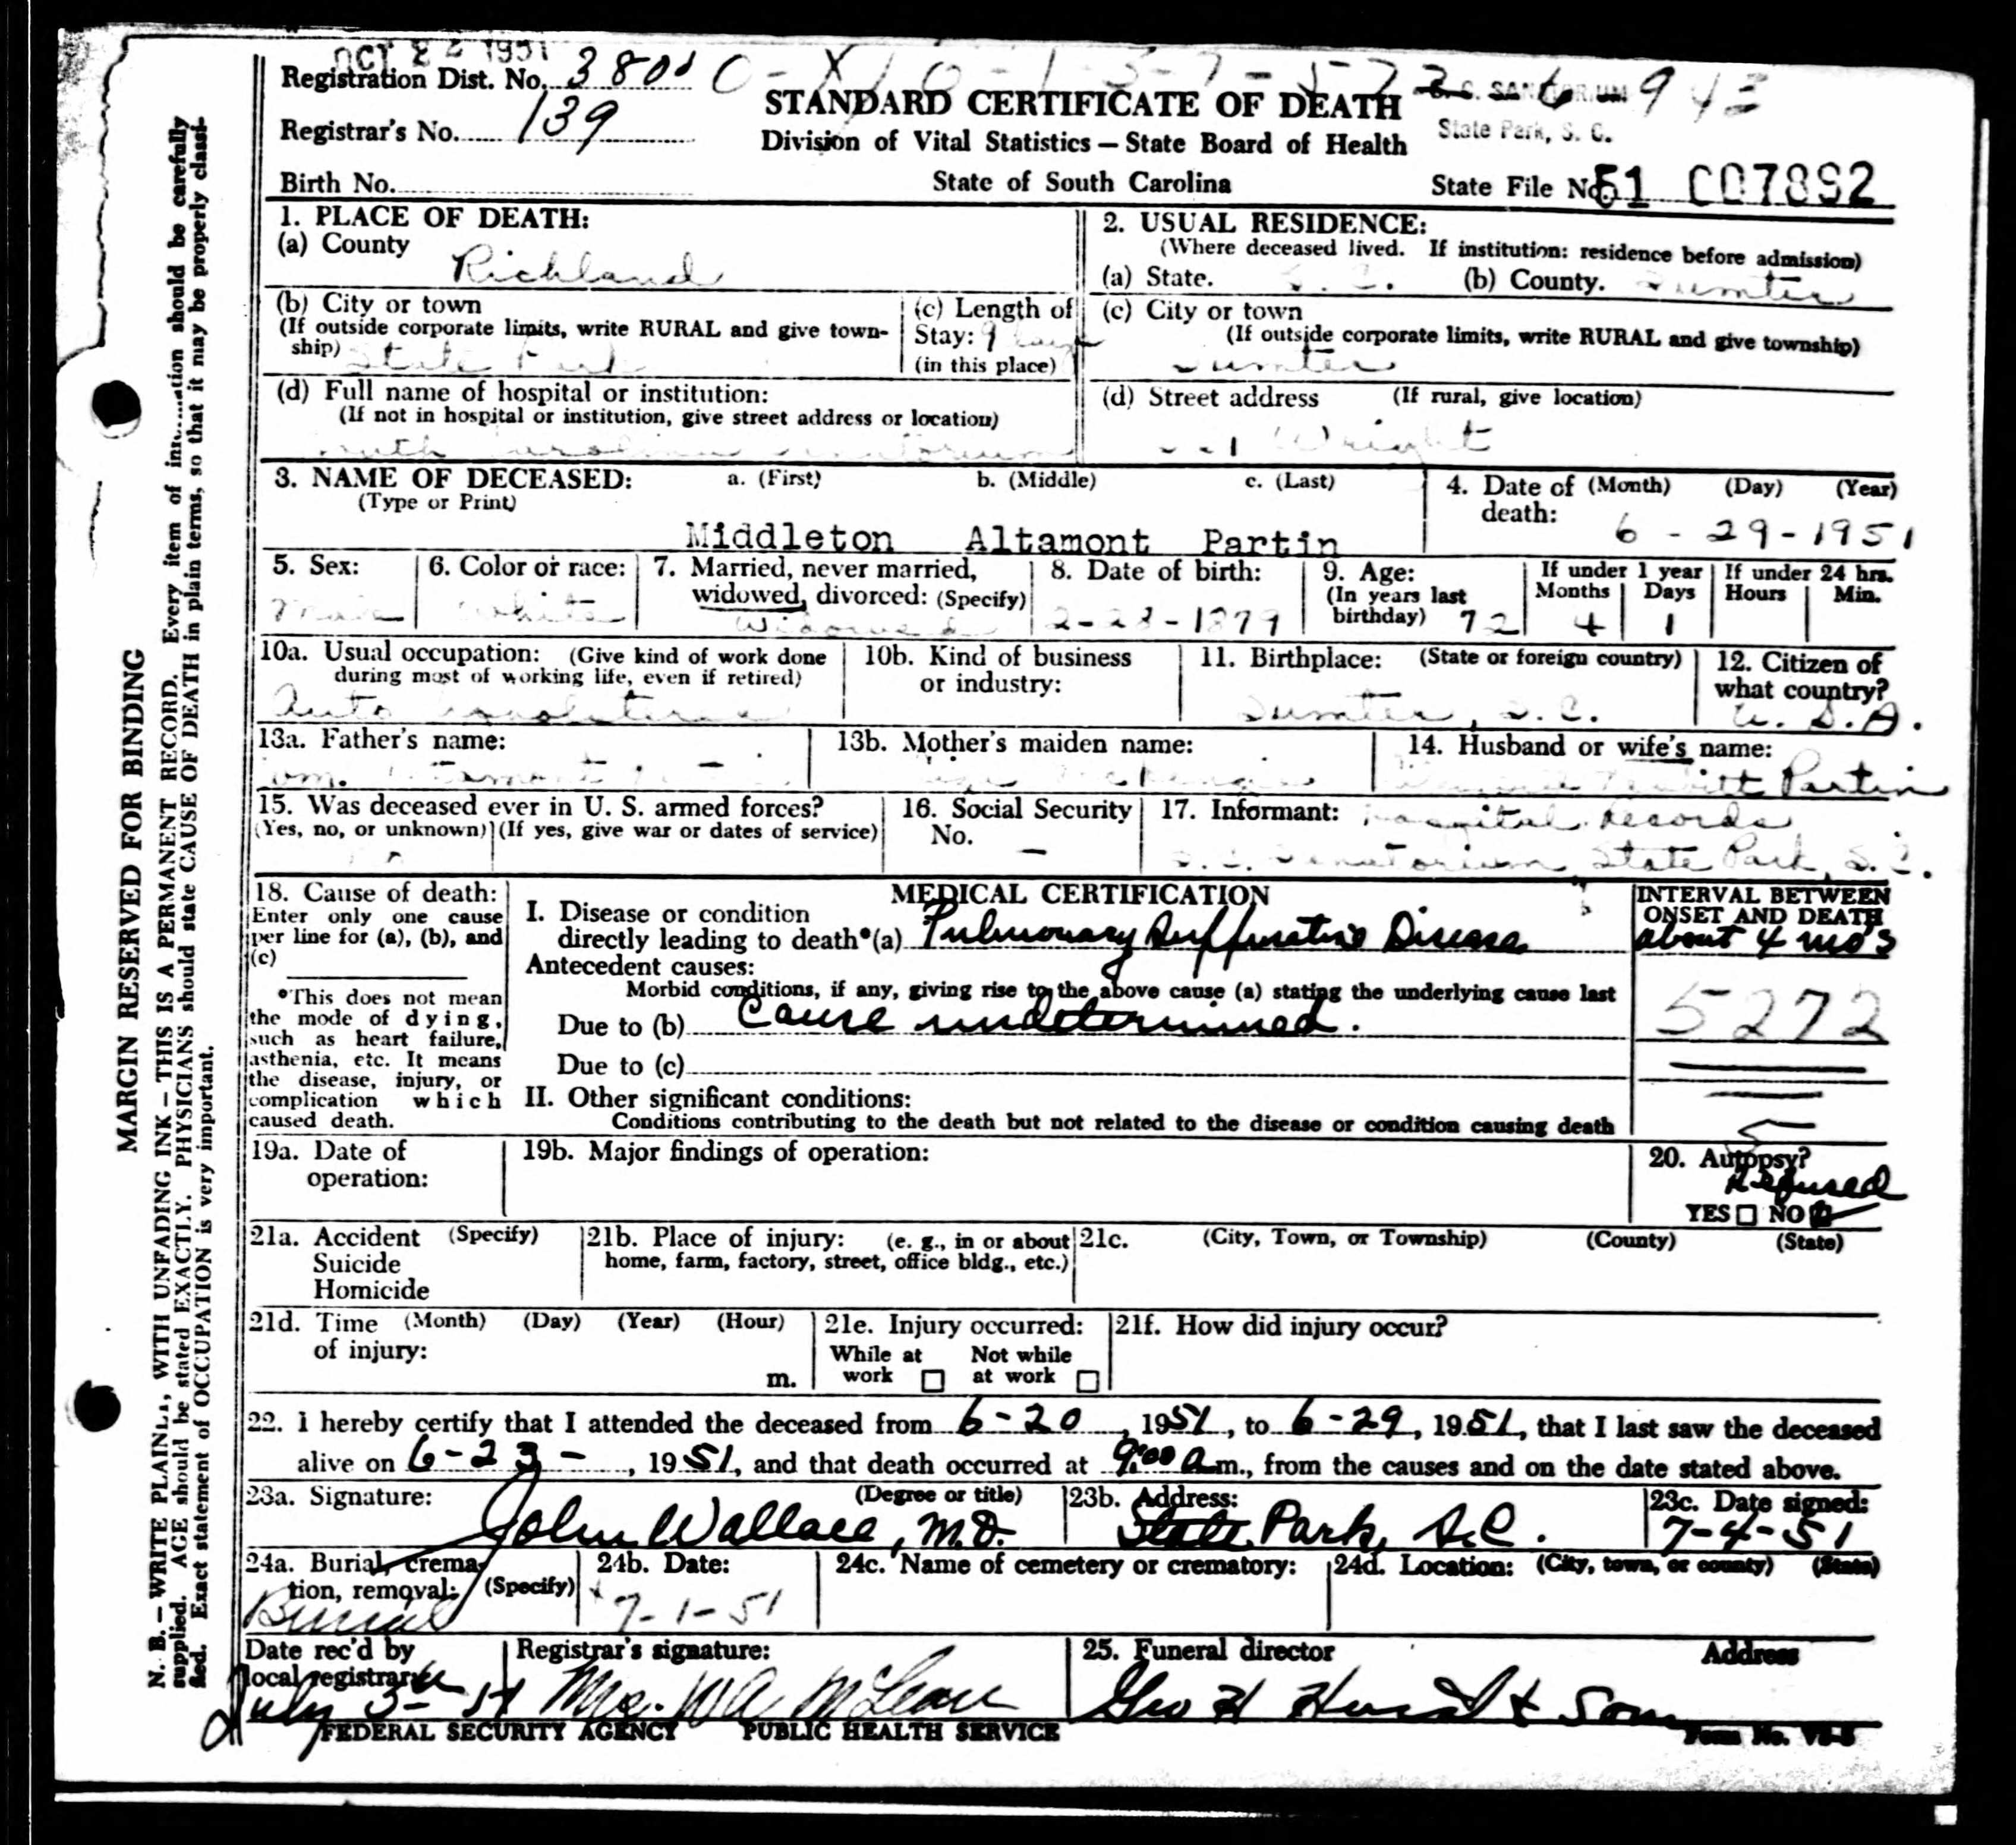 OCT 1951
Registration Dist. No. 3801
STANDARD CERTIFICATE OF DEATH
S. C. SANATORIUM
943
Registrar's No. 139
Division of Vital Statistics – State Board of Health
State Park, S. C.
Birth No.
State of South Carolina
State File No. 51
1. PLACE OF DEATH:
(a) County
Richland
2. USUAL RESIDENCE:
(Where deceased lived. If institution: residence before admission)
(a) State. S. C. (b) County. Sumter
(b) City or town
(If outside corporate limits, write RURAL and give town-
ship) State Park
(c) Length of
Stay: 9 days
(in this place)
(c) City or town
(If outside corporate limits, write RURAL and give township)
Sumter
(d) Full name of hospital or institution:
(If not in hospital or institution, give street address or location)
South Carolina Sanatorium
(d) Street address (If rural, give location)
Wright
3. NAME OF DECEASED: a. (First) b. (Middle) c. (Last)
(Type or Print)
Middleton Altamont Partin
4. Date of (Month) (Day) (Year)
death: 6 - 29 - 1951
5. Sex:
Male
6. Color or race:
White
7. Married, never married,
widowed, divorced: (Specify)
Widowed
8. Date of birth:
2-28-1879
9. Age:
(In years last
birthday) 72
If under 1 year
Months Days
4 1
If under 24 hrs.
Hours Min.
10a. Usual occupation: (Give kind of work done
during most of working life, even if retired)
Auto
10b. Kind of business
or industry:
11. Birthplace: (State or foreign country)
Sumter, S. C.
12. Citizen of
what country?
U. S. A.
13a. Father's name:
Wm. Altamont
13b. Mother's maiden name:
14. Husband or wife's name:
Partin
15. Was deceased ever in U. S. armed forces?
(Yes, no, or unknown) (If yes, give war or dates of service)
16. Social Security
No. —
17. Informant: Hospital Records
S. C. Sanatorium State Park, S. C.
18. Cause of death:
Enter only one cause
per line for (a), (b), and
(c)
*This does not mean
the mode of dying,
such as heart failure,
asthenia, etc. It means
the disease, injury, or
complication which
caused death.
MEDICAL CERTIFICATION
I. Disease or condition
directly leading to death*(a) Pulmonary Suppurative Disease
Antecedent causes:
Morbid conditions, if any, giving rise to the above cause (a) stating the underlying cause last
Due to (b) Cause undetermined.
Due to (c)
II. Other significant conditions:
Conditions contributing to the death but not related to the disease or condition causing death
INTERVAL BETWEEN
ONSET AND DEATH
about 4 mo's
5272
19a. Date of
operation:
19b. Major findings of operation:
20. Autopsy?
Refused
YES NO
21a. Accident (Specify)
Suicide
Homicide
21b. Place of injury: (e. g., in or about
home, farm, factory, street, office bldg., etc.)
21c. (City, Town, or Township) (County) (State)
21d. Time (Month) (Day) (Year) (Hour)
of injury:
m.
21e. Injury occurred:
While at Not while
work at work
21f. How did injury occur?
22. I hereby certify that I attended the deceased from 6-20, 1951, to 6-29, 1951, that I last saw the deceased
alive on 6-23-, 1951, and that death occurred at 9:00 a.m., from the causes and on the date stated above.
23a. Signature: (Degree or title)
John Wallace, M.D.
23b. Address:
State Park, S.C.
23c. Date signed:
7-4-51
24a. Burial, crema-
tion, removal: (Specify)
Burial
24b. Date:
7-1-51
24c. Name of cemetery or crematory:
24d. Location: (City, town, or county) (State)
Date rec'd by
local registrar
July 5th 51
Registrar's signature:
Mrs. W A McLean
25. Funeral director Address
Geo H Hurst & Son
FEDERAL SECURITY AGENCY PUBLIC HEALTH SERVICE
Form No. VS-5
MARGIN RESERVED FOR BINDING
N. B. – WRITE PLAINLY, WITH UNFADING INK – THIS IS A PERMANENT RECORD. Every item of information should be carefully
supplied. AGE should be stated EXACTLY. PHYSICIANS should state CAUSE OF DEATH in plain terms, so that it may be properly classi-
fied. Exact statement of OCCUPATION is very important.